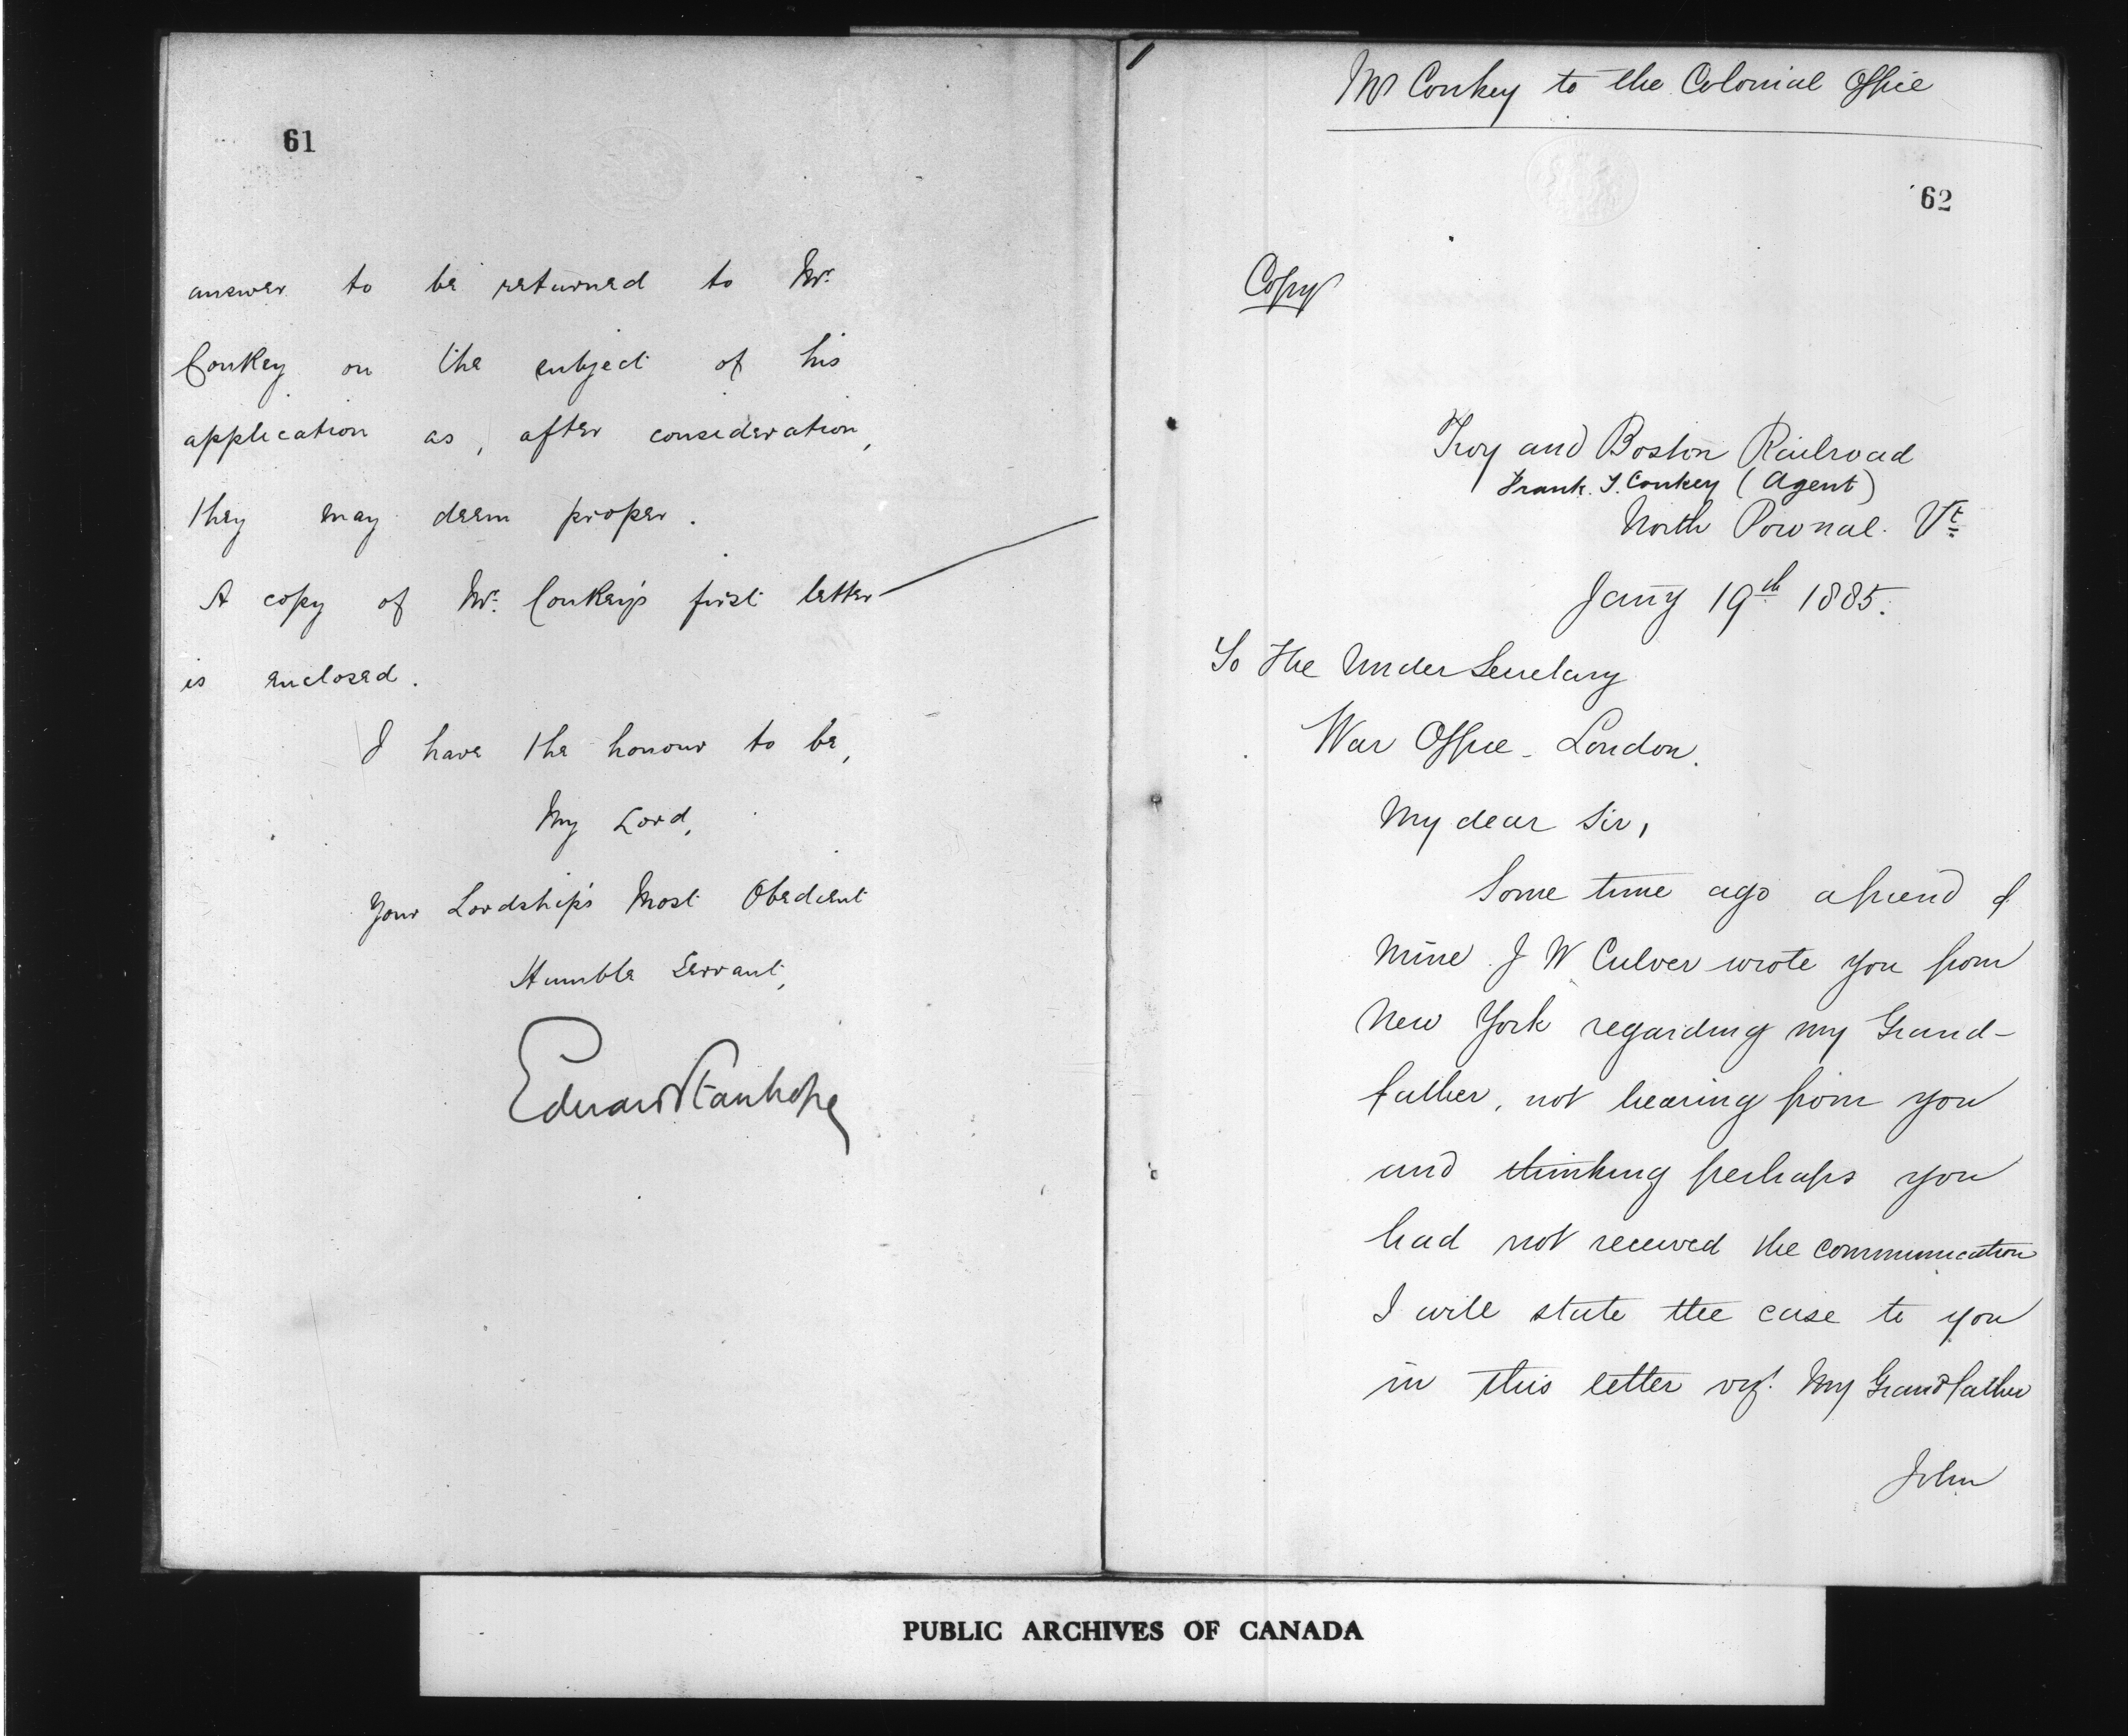 61
answer to be returned to Mr.
Conkey on the subject of his
application as, after consideration,
they may deem proper.
A copy of Mr. Conkey's first letter
is enclosed.
I have the honour to be,
My Lord,
Your Lordship's Most Obedient
Humble Servant,
Edward Stanhope
Mr Conkey to the Colonial Office
62
Copy
Troy and Boston Railroad
Frank. J. Conkey (Agent)
North Pownal. Vt
Jany 19th 1885.
To The Under Secretary
War Office - London.
My dear Sir,
Some time ago a friend of
mine J W Culver wrote you from
New York regarding my Grand-
father, not hearing from you
and thinking perhaps you
had not received the communication
I will state the case to you
in this letter viz. My Grandfather
John
PUBLIC ARCHIVES OF CANADA